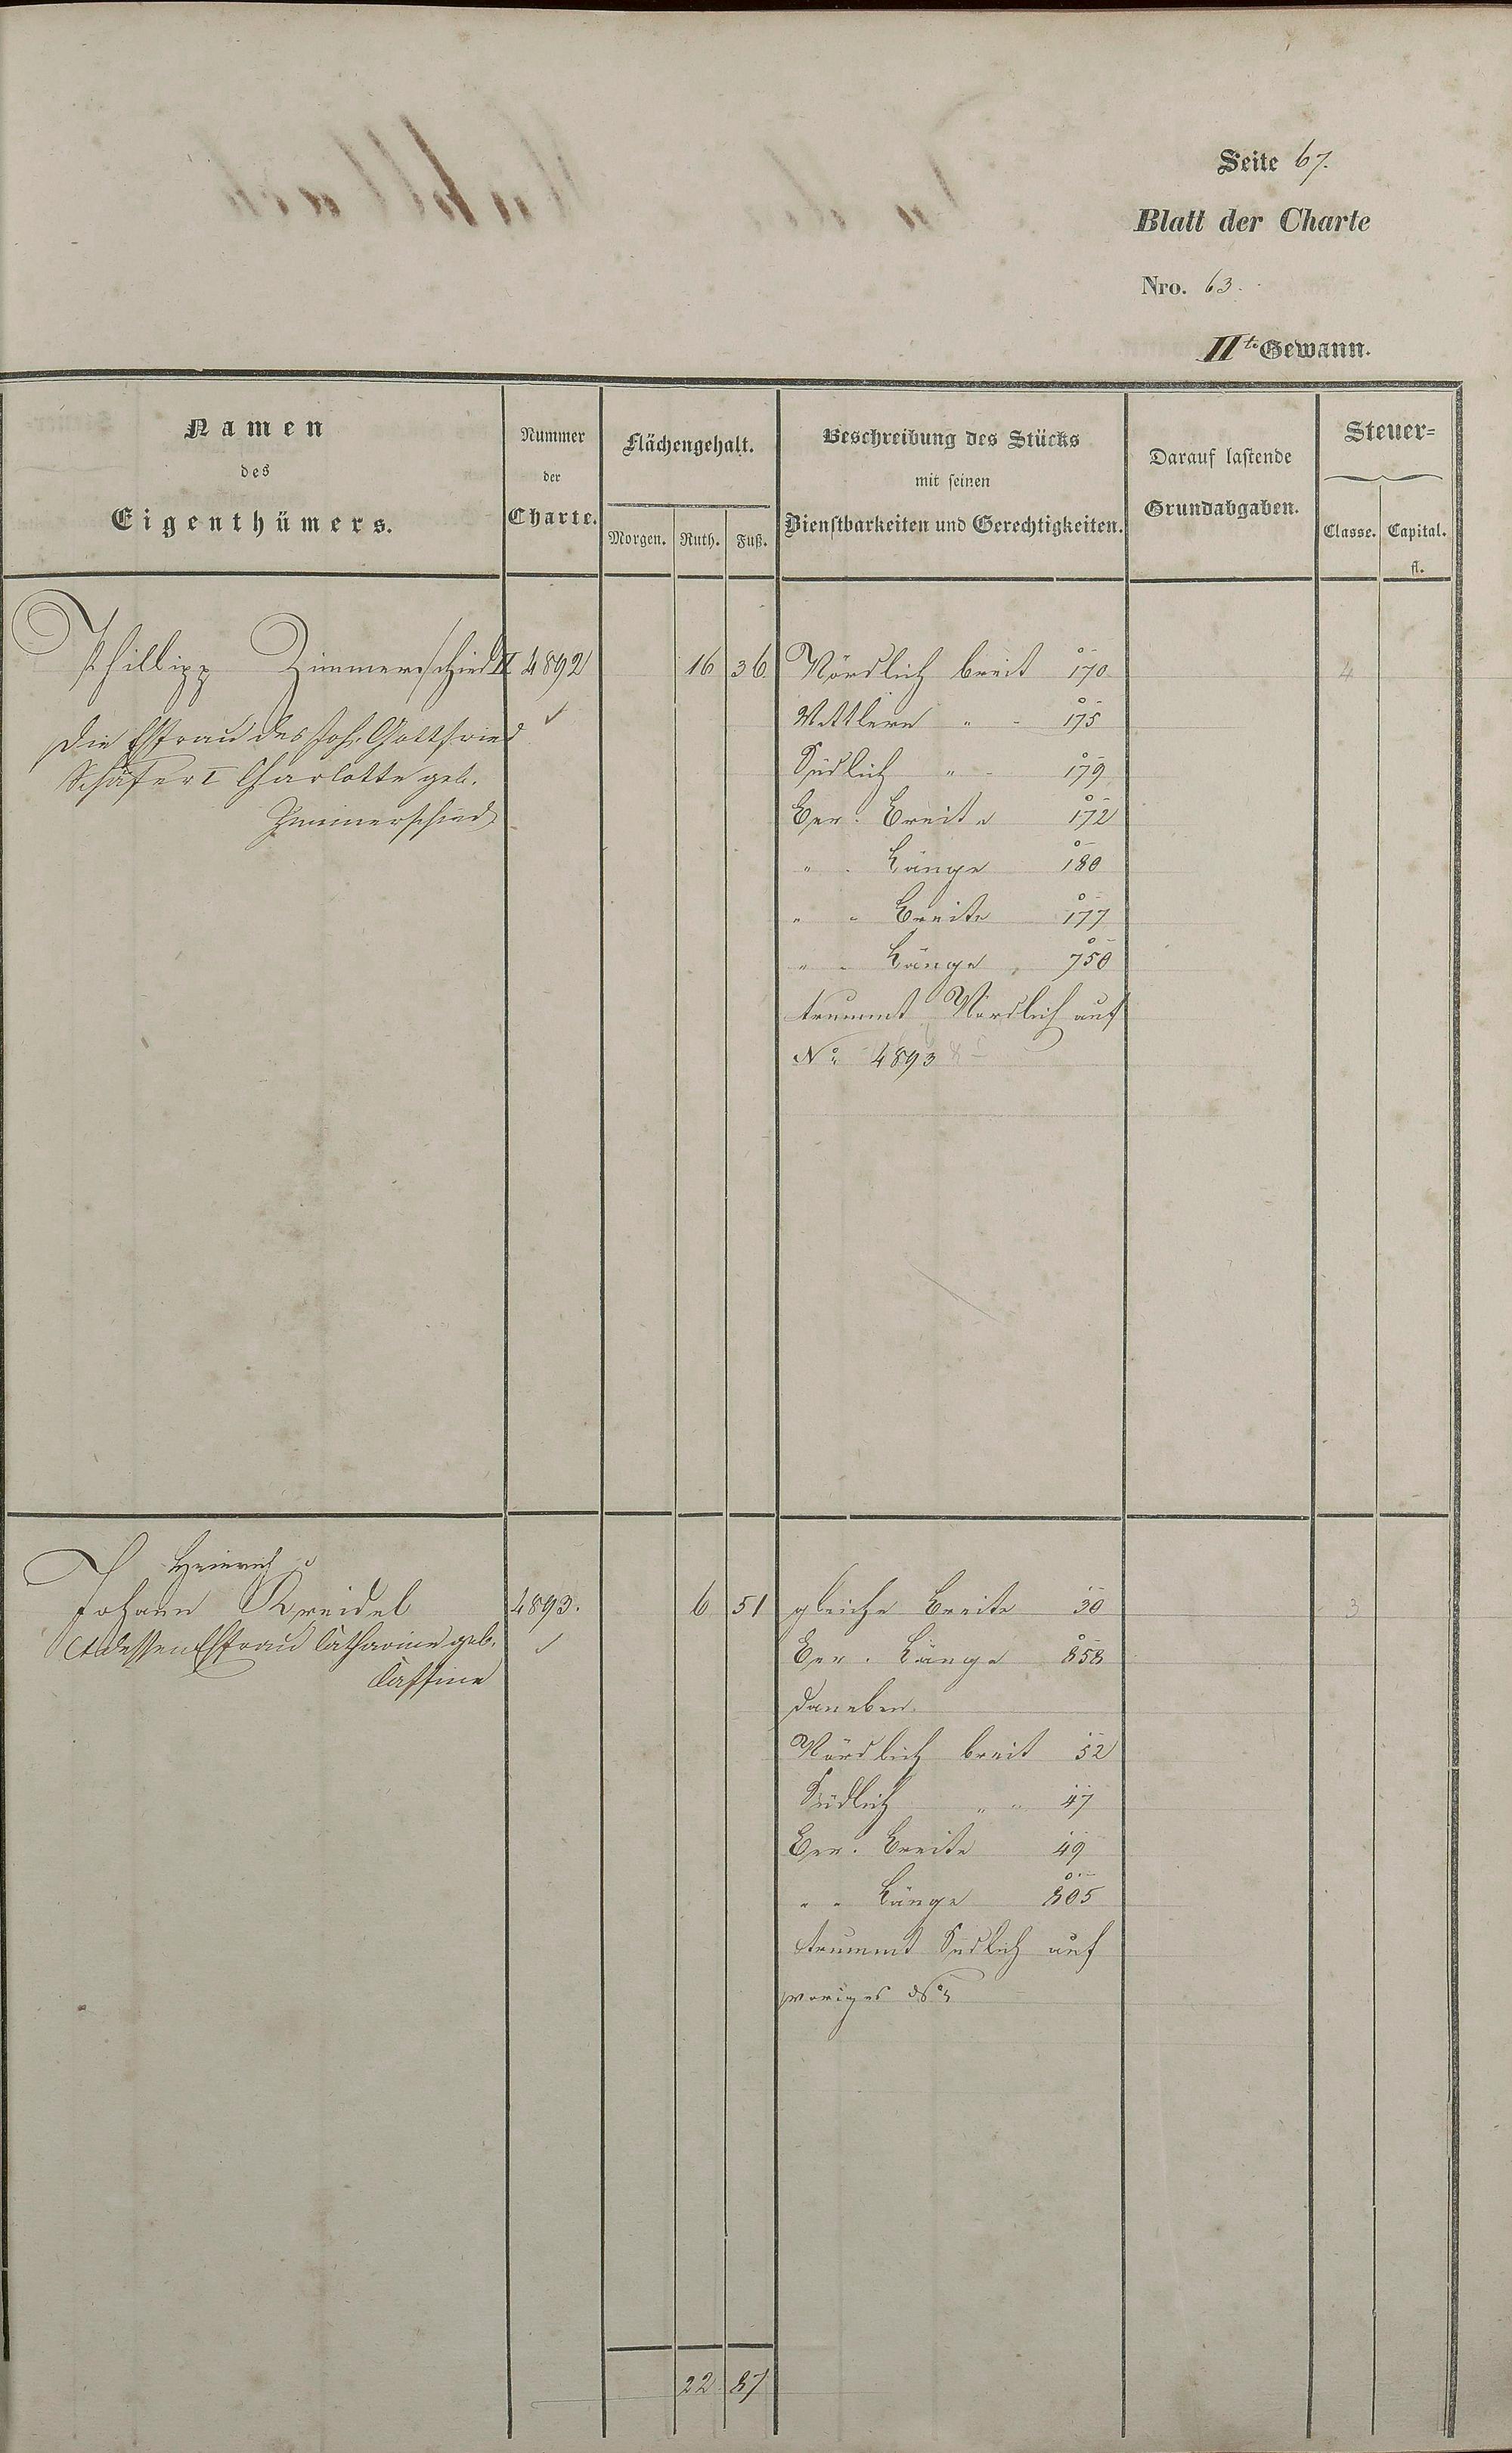 Seite 67.
Blatt der Charte
Nro. 63.
IIte Gewann.
Namen
des
Eigenthümers.
Nummer
der
Charte.
Flächengehalt.
Morgen. Ruth. Fuß.
Beschreibung des Stücks
mit seinen
Dienstbarkeiten und Gerechtigkeiten.
Darauf lastende
Grundabgaben.
Steuer=
Classe. Capital.
fl.
Phillipp Zimmerschied II 4892 16 36 Nördlich breit 170 4
Die Ehfrau des Joh. Gottfried
Schäfer I Charlotte geb.
Zimmerschied
Mittlere " - 175
Südlich " - 179
Ber. Breite 172
" - Länge 180
" " Breite 177
" - Länge 750
trummt Nördlich auf
No. 4893
Heinrich
Johann Kreidel 4893. 6 51 gleiche Breite 30 3
dessen Ehfrau Catharine geb.
Ber. Länge 858
daneben
Nördlich breit 52
Südlich " " 47
Ber. Breite 49
" " Länge 805
trummt Südlich auf
voriges No.
22 87